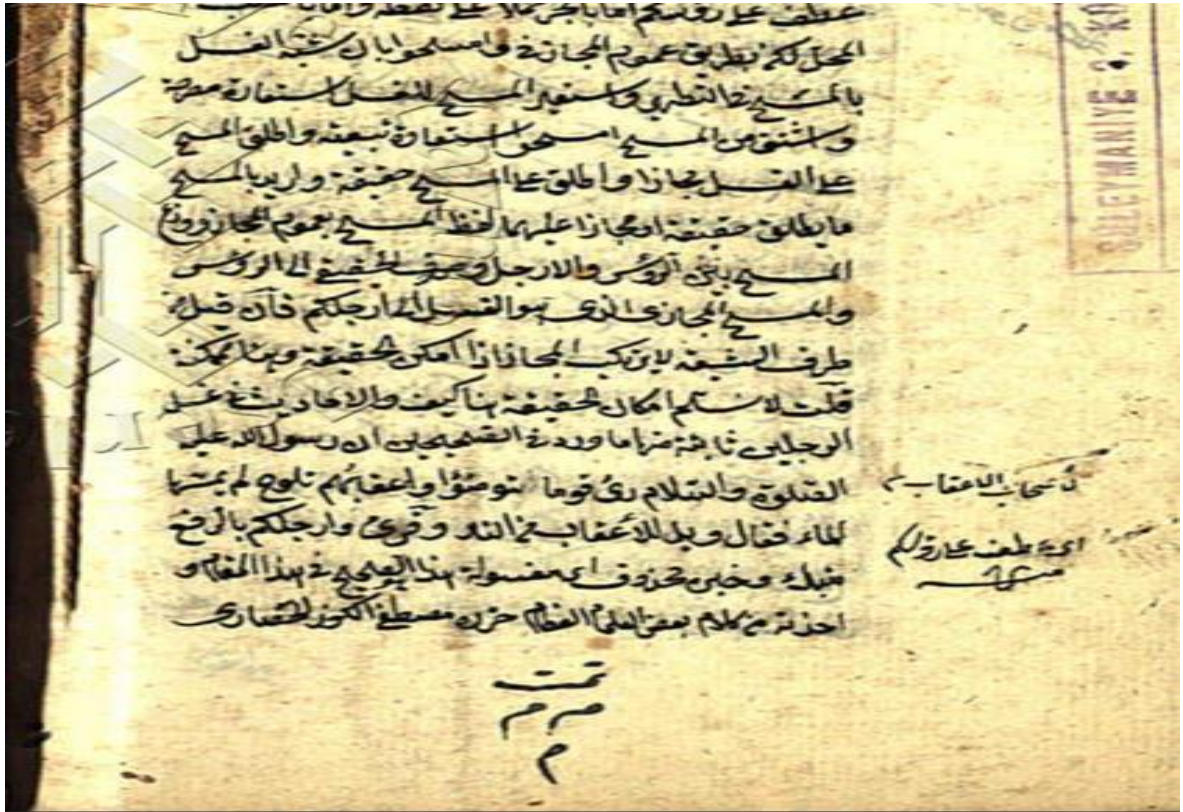 عطف على رؤسكم اما بالجر حملا على لفظه واما بالنصب
المحل لكن بطريق عموم المجاز في وامسحوا بان شبه الغسل
بالمسح في التطهير واستعير المسح للغسل استعارة مصرحة
واشتق من المسح امسحوا استعارة تبعية واطلق المسح
على الغسل مجازا واطلق على المسح حقيقة واريد بالمسح
ما يطلق حقيقة او مجازا عليهما لفظ المسح بعموم المجاز ووزع
المسح بين الرؤس والارجل وصرف الحقيقي الى الرؤس
والمسح المجازي الذي هو الغسل الى ارجلكم فان قيل من
طرف الشيعة لا يرتكب المجاز اذا امكن الحقيقة وهنا ممكنة
قلت لا نسلم امكان الحقيقة هنا كيف والاحاديث في غسل
الرجلين ثابتة منها ما ورد في الصحيحين ان رسول الله عليه
الصلوة والسلام رئ قوما توضؤا واعقابهم تلوح لم يمسها
الماء فقال ويل للاعقاب من النار وقرئ وارجلكم بالرفع
مبتدأ وخبره محذوف اى مغسولة هذا الصحيح في هذا المقام و
اخذته من كلام بعض العلماء العظام حرره مصطفى الكوز الحصاري
تمت
م م
م
اى اصحاب الاعقاب
اى عطف على رؤسكم
منه
SÜLEYMANİYE